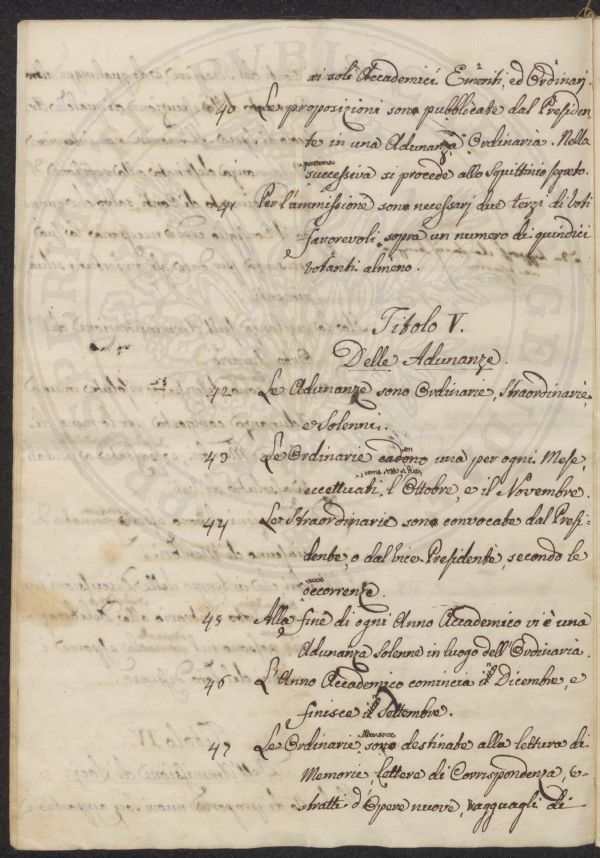 ai soli Accademici Emeriti, ed Ordinarj.
40 Le proposizioni sono pubblicate dal Presiden-
te in una Adunanza Ordinaria. Nella
prossima
successiva si procede allo Squittinio segreto.
41 Per l'ammissione sono necessarj due terzi di Voti
favorevoli sopra un numero di quindici
votanti almeno.
Titolo V.
Delle Adunanze.
42 Le Adunanze sono Ordinarie, Straordinarie,
e Solenni.
43 Le Ordinarie cadono una per ogni Mese,
eccettuati l'Ottobre, e il Novembre.
44 Le Straordinarie sono convocate dal Presi-
dente, o dal Vice-Presidente, secondo le
occorrenze.
45 Alla fine di ogni Anno Accademico vi è una
Adunanza Solenne in luogo dell'Ordinaria.
46 L'Anno Accademico comincia il Dicembre, e
finisce il Settembre.
Adunanze
47 Le Ordinarie sono destinate alla lettura di
Memorie, Lettere di Corrispondenza, e-
stratti d'Opere nuove, ragguagli di